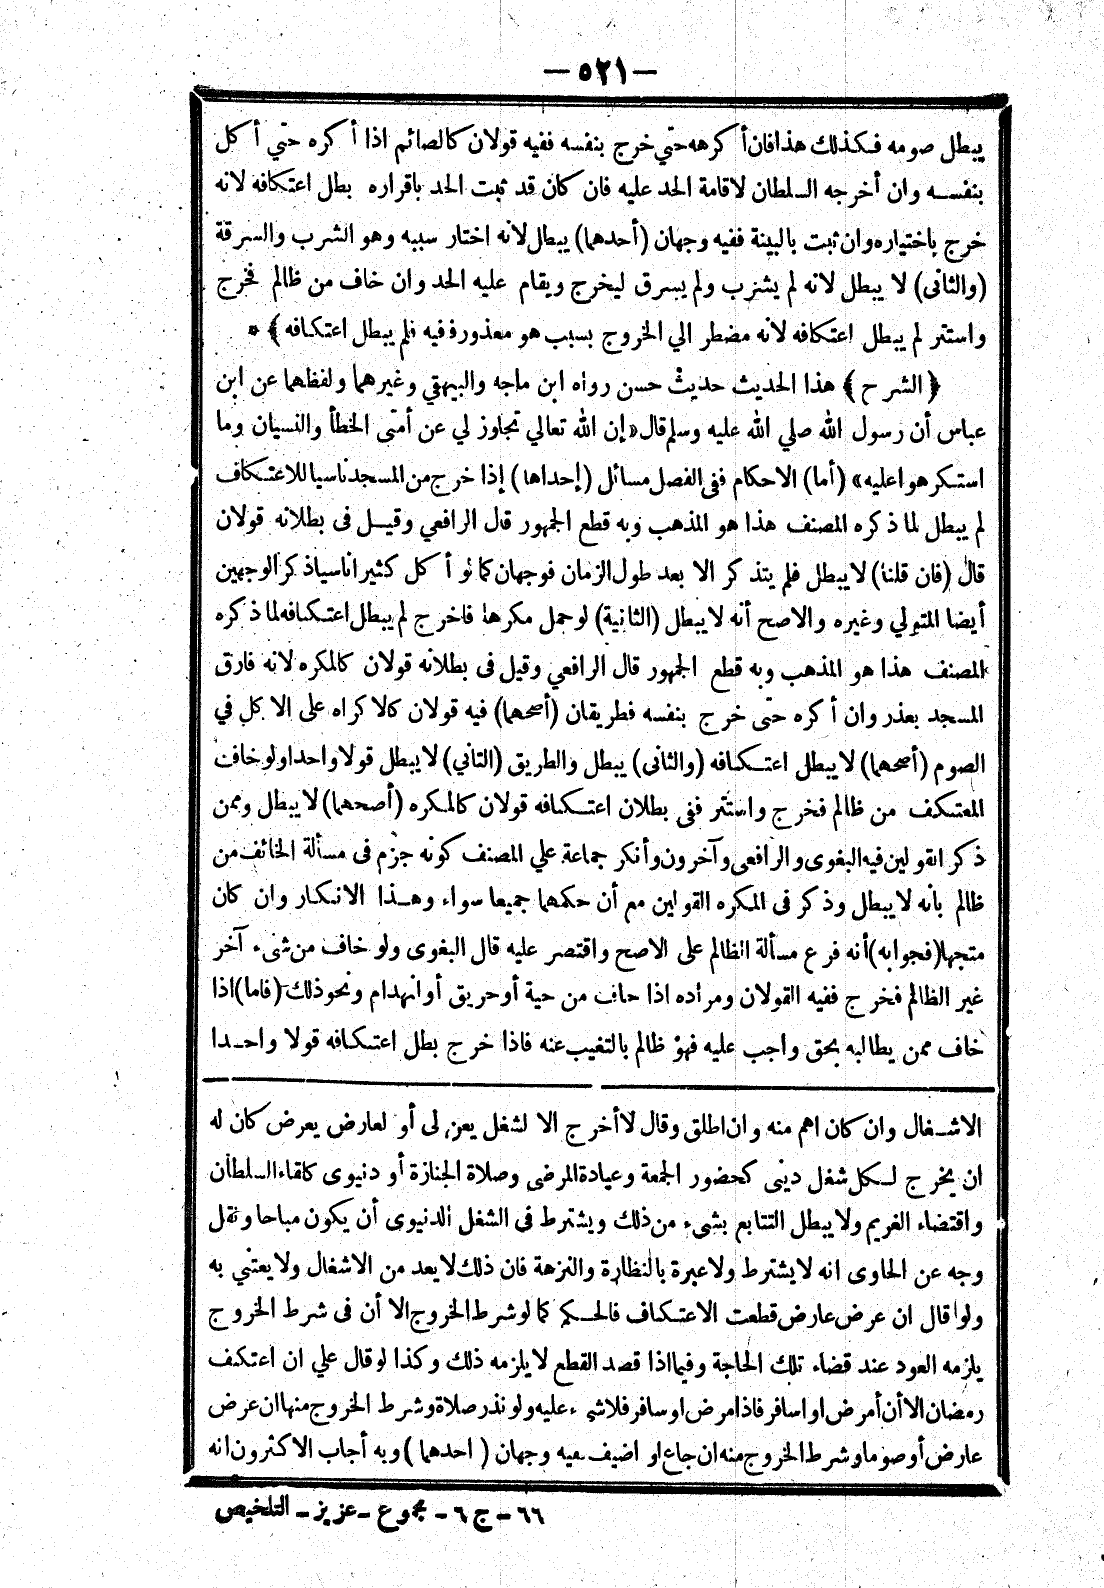 — ٥٢١ —
يبطل صومه فكذلك هذا فان أكرهه حتي خرج بنفسه ففيه قولان كالصائم اذا أكره حتي أكل
بنفسه وان أخرجه السلطان لاقامة الحد عليه فان كان قد ثبت الحد باقراره بطل اعتكافه لانه
خرج باختياره وان ثبت بالبينة ففيه وجهان (أحدهما) يبطل لانه اختار سببه وهو الشرب والسرقة
(والثانى) لا يبطل لانه لم يشرب ولم يسرق ليخرج ويقام عليه الحد وان خاف من ظالم فخرج
واستتر لم يبطل اعتكافه لانه مضطر الي الخروج بسبب هو معذور فيه فلم يبطل اعتكافه ﴾ *
﴿ الشرح ﴾ هذا الحديث حديث حسن رواه ابن ماجه والبيهقي وغيرهما ولفظهما عن ابن
عباس أن رسول الله صلي الله عليه وسلم قال «إن الله تعالي تجاوز لي عن أمتى الخطأ والنسيان وما
استكرهوا عليه» (أما) الاحكام ففى الفصل مسائل (إحداها) إذا خرج من المسجد ناسيا للاعتكاف
لم يبطل لما ذكره المصنف هذا هو المذهب وبه قطع الجمهور قال الرافعي وقيل فى بطلانه قولان
قال (فان قلنا) لا يبطل فلم يتذكر الا بعد طول الزمان فوجهان كما لو أكل كثيرا ناسيا ذكر الوجهين
أيضا المتولي وغيره والاصح أنه لا يبطل (الثانية) لو حمل مكرها فاخرج لم يبطل اعتكافه لما ذكره
المصنف هذا هو المذهب وبه قطع الجمهور قال الرافعي وقيل فى بطلانه قولان كالمكره لانه فارق
المسجد بعذر وان أكره حتى خرج بنفسه فطريقان (أصحهما) فيه قولان كالاكراه على الاكل في
الصوم (أصحهما) لا يبطل اعتكافه (والثانى) يبطل والطريق (الثاني) لا يبطل قولا واحدا ولو خاف
المعتكف من ظالم فخرج واستتر ففى بطلان اعتكافه قولان كالمكره (أصحهما) لا يبطل وممن
ذكر القولين فيه البغوى والرافعى وآخرون وأنكر جماعة علي المصنف كونه جزم فى مسألة الخائف من
ظالم بأنه لا يبطل وذكر فى المكره القولين مع أن حكمهما جميعا سواء وهذا الانكار وان كان
متجها (فجوابه) أنه فرع مسألة الظالم على الاصح واقتصر عليه قال البغوى ولو خاف من شىء آخر
غير الظالم فخرج ففيه القولان ومراده اذا خاف من حية أو حريق أو انهدام ونحو ذلك (فاما) اذا
خاف ممن يطالبه بحق واجب عليه فهو ظالم بالتغيب عنه فاذا خرج بطل اعتكافه قولا واحدا
الاشغال وان كان اهم منه وان اطلق وقال لا أخرج الا لشغل يعن لى أو لعارض يعرض كان له
ان يخرج لكل شغل دينى كحضور الجمعة وعيادة المرضى وصلاة الجنازة أو دنيوى كلقاء السلطان
واقتضاء الغريم ولا يبطل التتابع بشىء من ذلك ويشترط فى الشغل الدنيوى أن يكون مباحا ونقل
وجه عن الحاوى انه لا يشترط ولا عبرة بالنظارة والنزهة فان ذلك لا يعد من الاشغال ولا يعتني به
ولو قال ان عرض عارض قطعت الاعتكاف فالحكم كما لو شرط الخروج الا أن فى شرط الخروج
يلزمه العود عند قضاء تلك الحاجة وفيما اذا قصد القطع لا يلزمه ذلك وكذا لو قال علي ان اعتكف
رمضان الا أن أمرض او اسافر فاذا مرض او سافر فلا شىء عليه ولو نذر صلاة وشرط الخروج منها ان عرض
عارض أو صوما وشرط الخروج منه ان جاع او اضيف ففيه وجهان (احدهما) وبه أجاب الاكثرون انه
٦٦ - ج ٦ - مجموع - عزيز - التلخيص